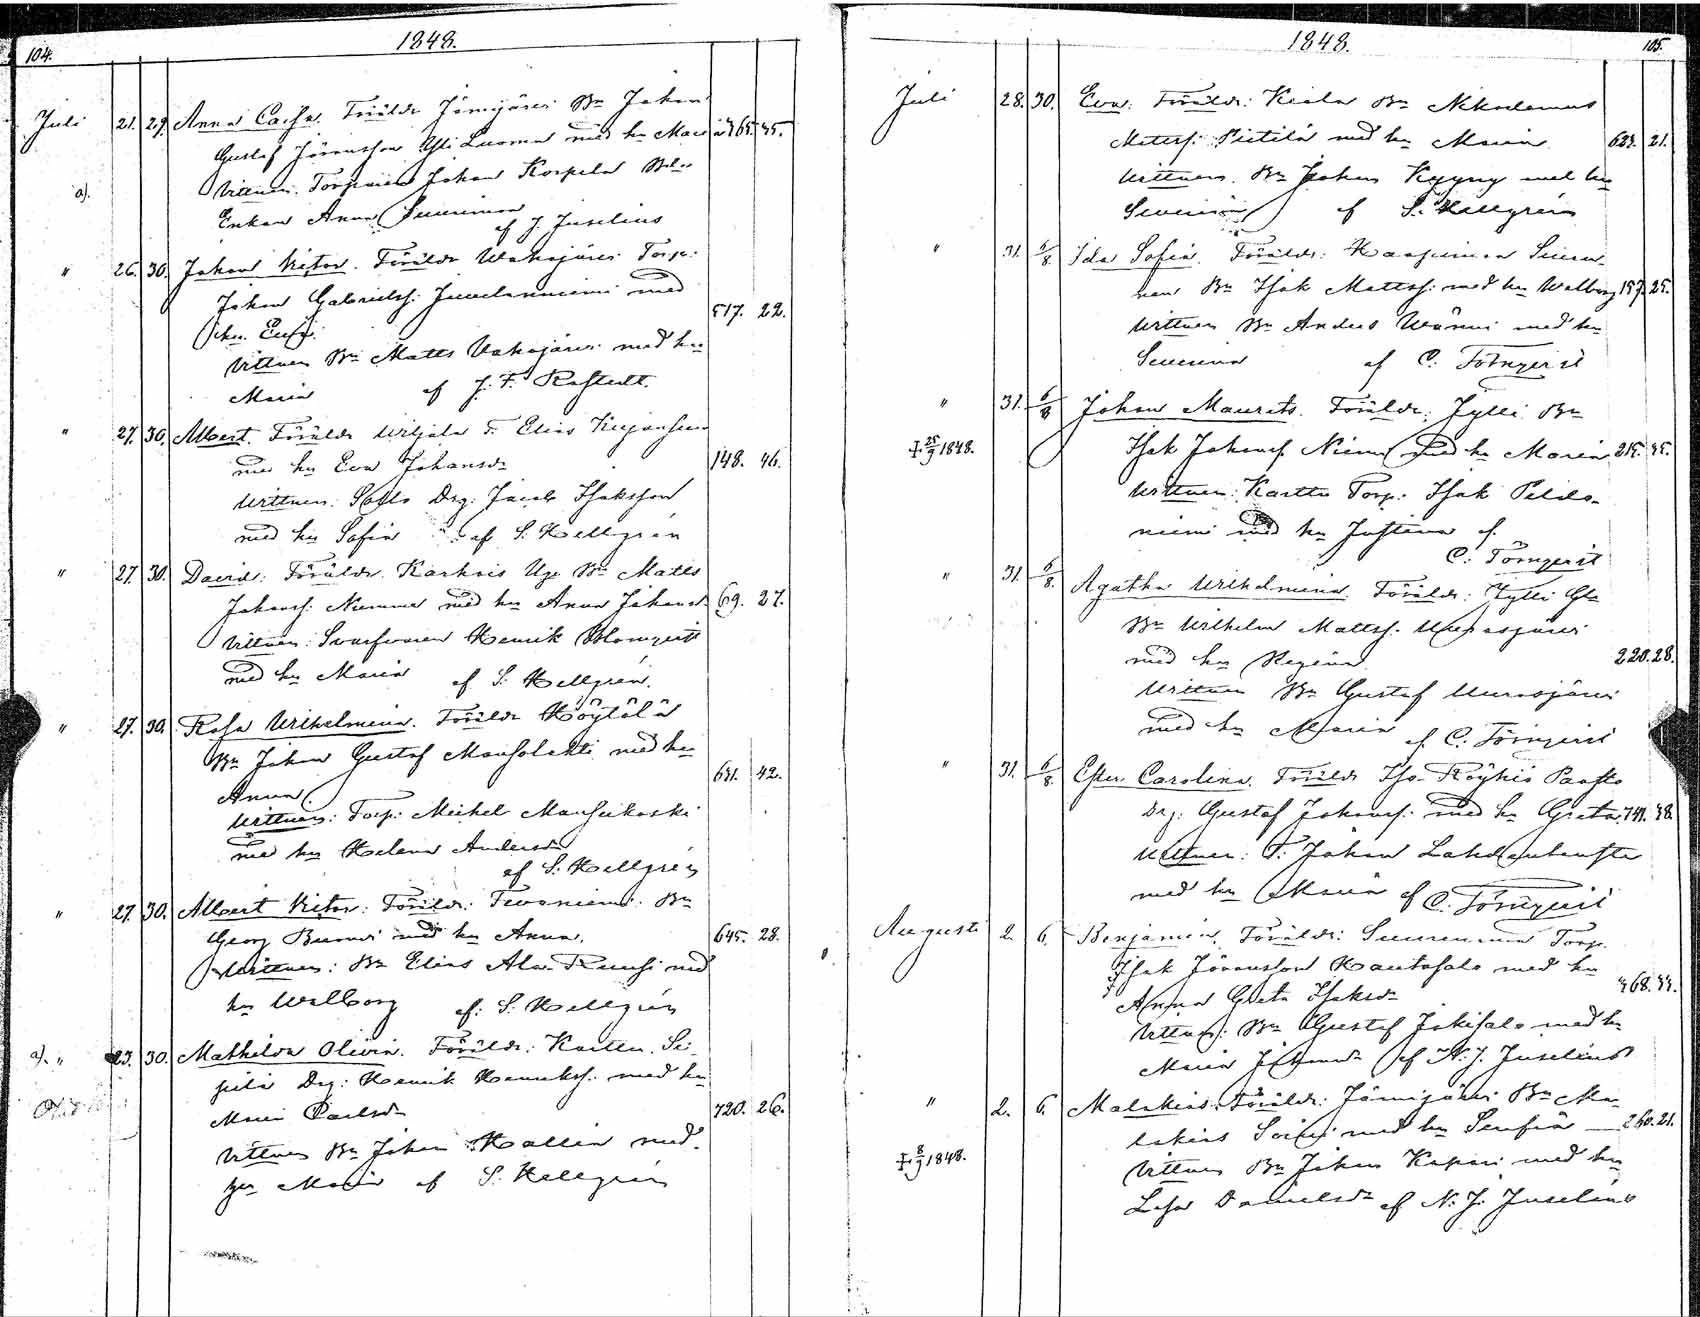 104.
1848.
Juli 21. 29. Anna Caisa. Föräldr Jämijärvi Bn Johan
Gustaf Jöransson Yli Luoma med hu Maria 365. 35.
a). Vittnen. Torparen Johan Korpela
Enkan Anna Suurimaa
af J. Juselius
" 26. 30. Johan Victor. Föräldr Vahojärvi Torp:
Johan Gabrielsf: med
517. 22.
hu Eufr:
Vittnen Bn Matts Vahojärvi med hu
Maria af J. F. Rostedt.
" 27. 30. Albert. Föräldr Viljala T. Elias
med hu Eva Johansdr 148. 46.
Vittnen: Drg: Jacob Isaksson
med hu Sofia af S. Hellgrén
" 27. 30. David: Föräldr. Karhois Uge Bn Matts
Johansf: Nummi med hu Anna Johansdr 69. 27.
Vittnen: Svarfvaren Henrik Blomqvist
med hu Maria af S. Hellgrén.
" 27. 30. Rosa Wilhelmina. Föräldr Höytölä
Bn Johan Gustaf Mansolahti med hu
Anna. 631. 42.
Vittnen: Torp: Michel Mansikoski
med hu Helena Andersdr
af S. Hellgrén
" 27. 30. Albert Victor: Föräldr: Tevaniemi Bn
Georg med hu Anna. 645. 28.
Vittnen: Bn Elias Ala-Ruusi med
hu Walborg af: S. Hellgrén
a). " 23. 30. Mathilda Olivia. Föräldr: Karttu Sei-
pilä Drg: Henrik Henriksf. med hu
Maria Carlsdr 720. 26.
Vittnen Bn Johan Kallia med
hu Maria af S. Hellgrén
1848.
105.
Juli 28. 30. Eva: Föräldr: Kiala Bn Nikodemus
Mattsf: Pietilä med hu Maria 623. 21.
Vittnen. Bn Johan Kyyny med hu
Severina af S. Hellgrén
" 31. 6/8. Ida Sofia. Föräldr:
Bn Isak Mattsf: med hu Walborg 197. 25.
Vittnen Bn Anders Wänni med hu
Severina af C. Törnqvist
" 31. 6/8 Johan Maurits. Föräldr: Jylli Bn
‡ 25/9 1848. Isak Johansf Niemi med hu Maria 215. 35.
Vittnen: Karttu Torp: Isak Peldo-
niemi med hu Justina af
C. Törnqvist
" 31. 6/8. Agatha Wilhelmina. Föräldr: Kylli
Bn Wilhelm Mattsf.
med hu Regina 220. 28.
Vittnen Bn Gustaf Murasjärvi
med hu Maria af C. Törnqvist
" 31. 6/8 Ester Carolina. Föräldr Iso-Röyhiö
Drg: Gustaf Johansf: med hu Greta 741. 38.
Vittnen: T: Johan
med hu Maria af C. Törnqvist
Augusti 2. 6. Benjamin. Föräldr: Suurenmaa Torp.
Isak Jöransson Rautasalo med hu
Anna Greta Isaksdr 368. 33.
Vittnen: Bn Gustaf Jokisalo med hu
Maria Johansdr af N. J. Juselius
" 2. 6. Malakias. Föräldr: Jämijärvi Bn Ma-
lakias Soini med hu Serafia 260. 21.
‡ 8/9 1848. Vittnen Bn Johan Kapari med hu
Lisa Danielsdr af N. J. Juselius